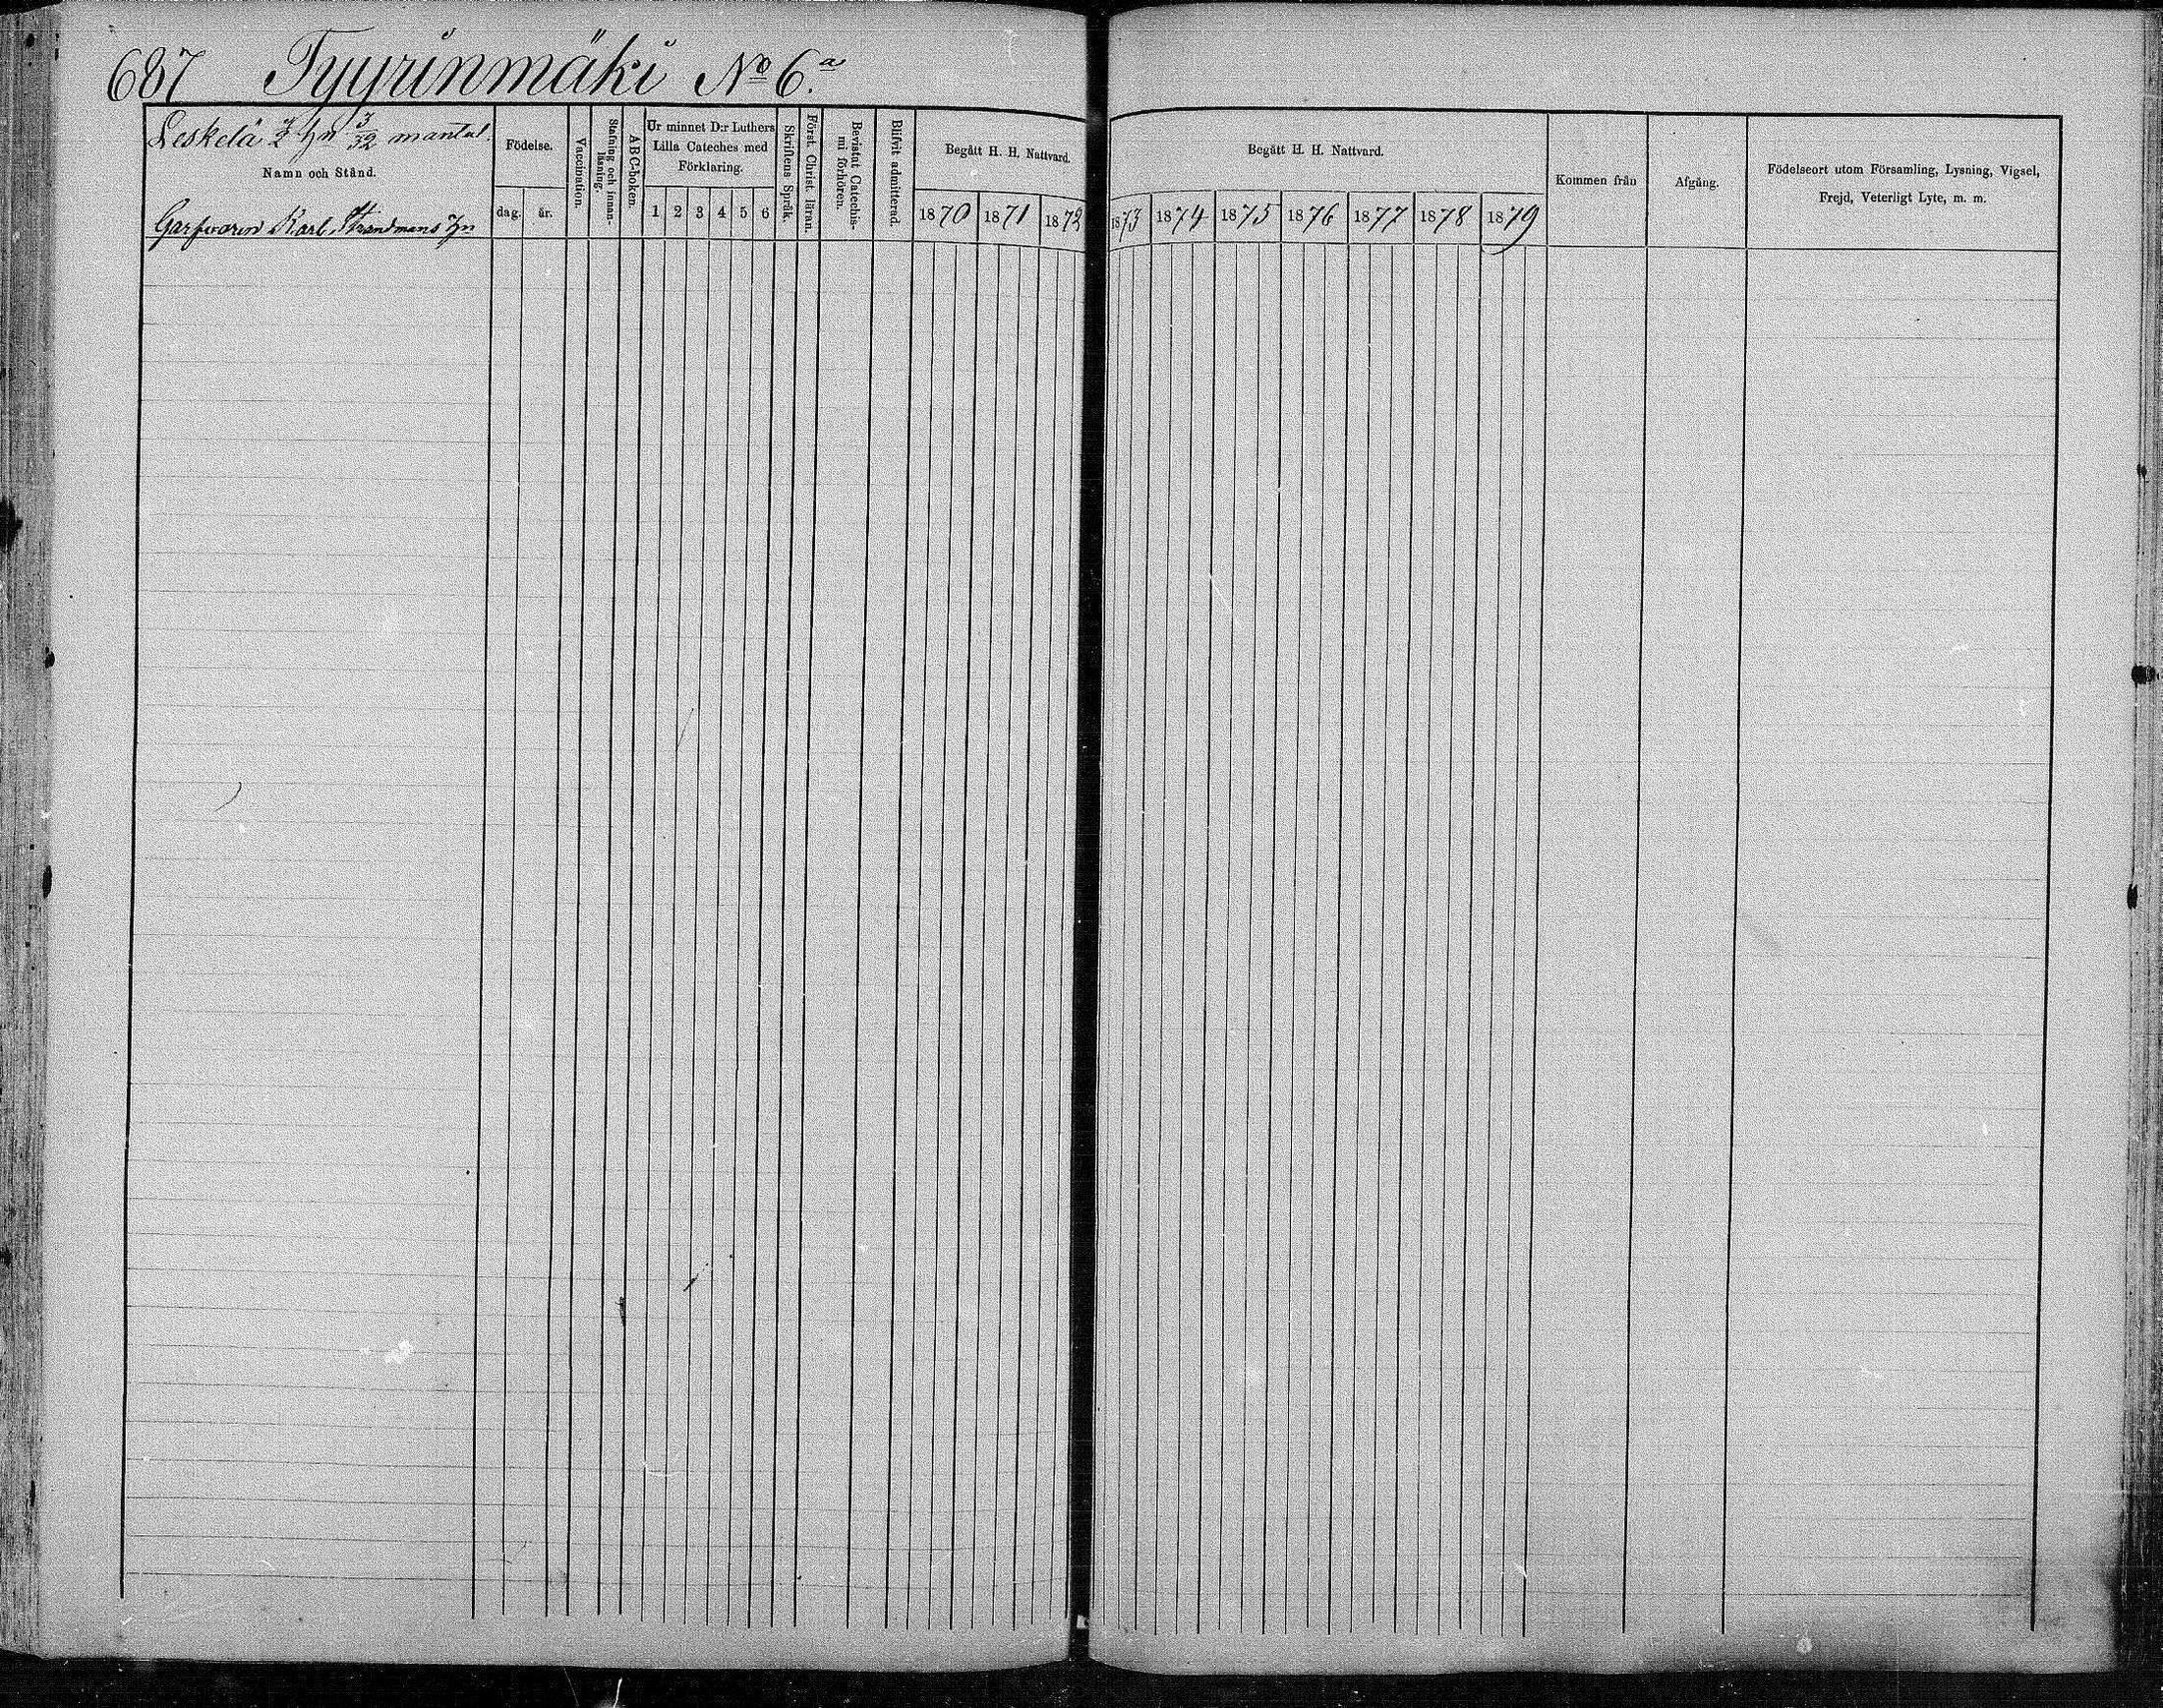 687 Tyyrinmäki No 6.a
Leskelä 1/2 hn 3/32 mantal.
Namn och Stånd.
Garfvarin Karl Strandmans hn
Födelse.
dag. år.
Vaccination.
Stafning och innan-
läsning.
ABC-boken.
Ur minnet D:r Luthers
Lilla Cateches med
Förklaring.
1 2 3 4 5 6
Skriftens Språk.
Först. Christ. läran.
Bevistat Catechis-
mi förhören.
Blifvit admitterad.
Begått H. H. Nattvard.
1870 1871 1872
Begått H. H. Nattvard.
1873 1874 1875 1876 1877 1878 1879
Kommen från
Afgång.
Födelseort utom Församling, Lysning, Vigsel,
Frejd, Veterligt Lyte, m. m.